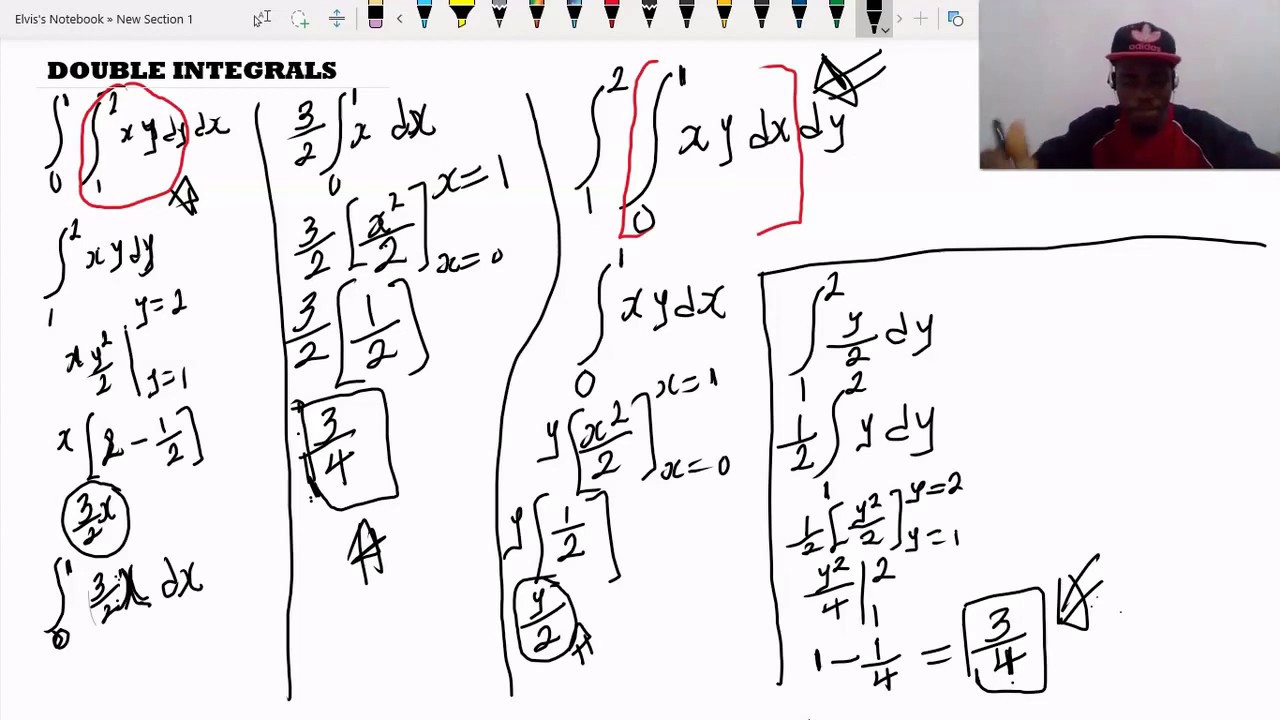 Elvis's Notebook » New Section 1
adidas
DOUBLE INTEGRALS
∫₀¹ ∫₁² xy dy dx
∫₁² xy dy
x y²/2 | y=2 y=1
x [2 − 1/2]
3/2 x
∫₀¹ 3/2 x dx
3/2 ∫₀¹ x dx
3/2 [x²/2] x=1 x=0
3/2 [1/2]
3/4
∫₁² ∫₀¹ xy dx dy
∫₀¹ xy dx
y [x²/2] x=1 x=0
y [1/2]
y/2
∫₁² y/2 dy
1/2 ∫₁² y dy
1/2 [y²/2] y=2 y=1
y²/4 | 2 1
1 − 1/4 = 3/4